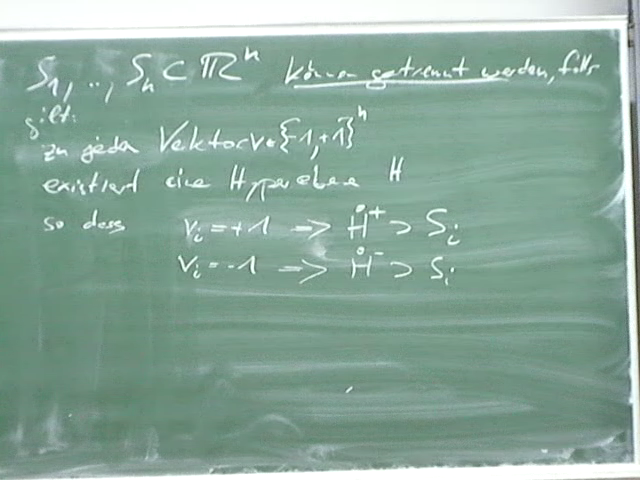 S₁, .., Sₙ ⊂ ℝⁿ können getrennt werden, falls
gilt:
zu jedem Vektor v ∈ {-1,+1}ⁿ
existiert eine Hyperebene H
so dass vᵢ = +1 => H̊⁺ ⊃ Sᵢ
vᵢ = -1 => H̊⁻ ⊃ Sᵢ